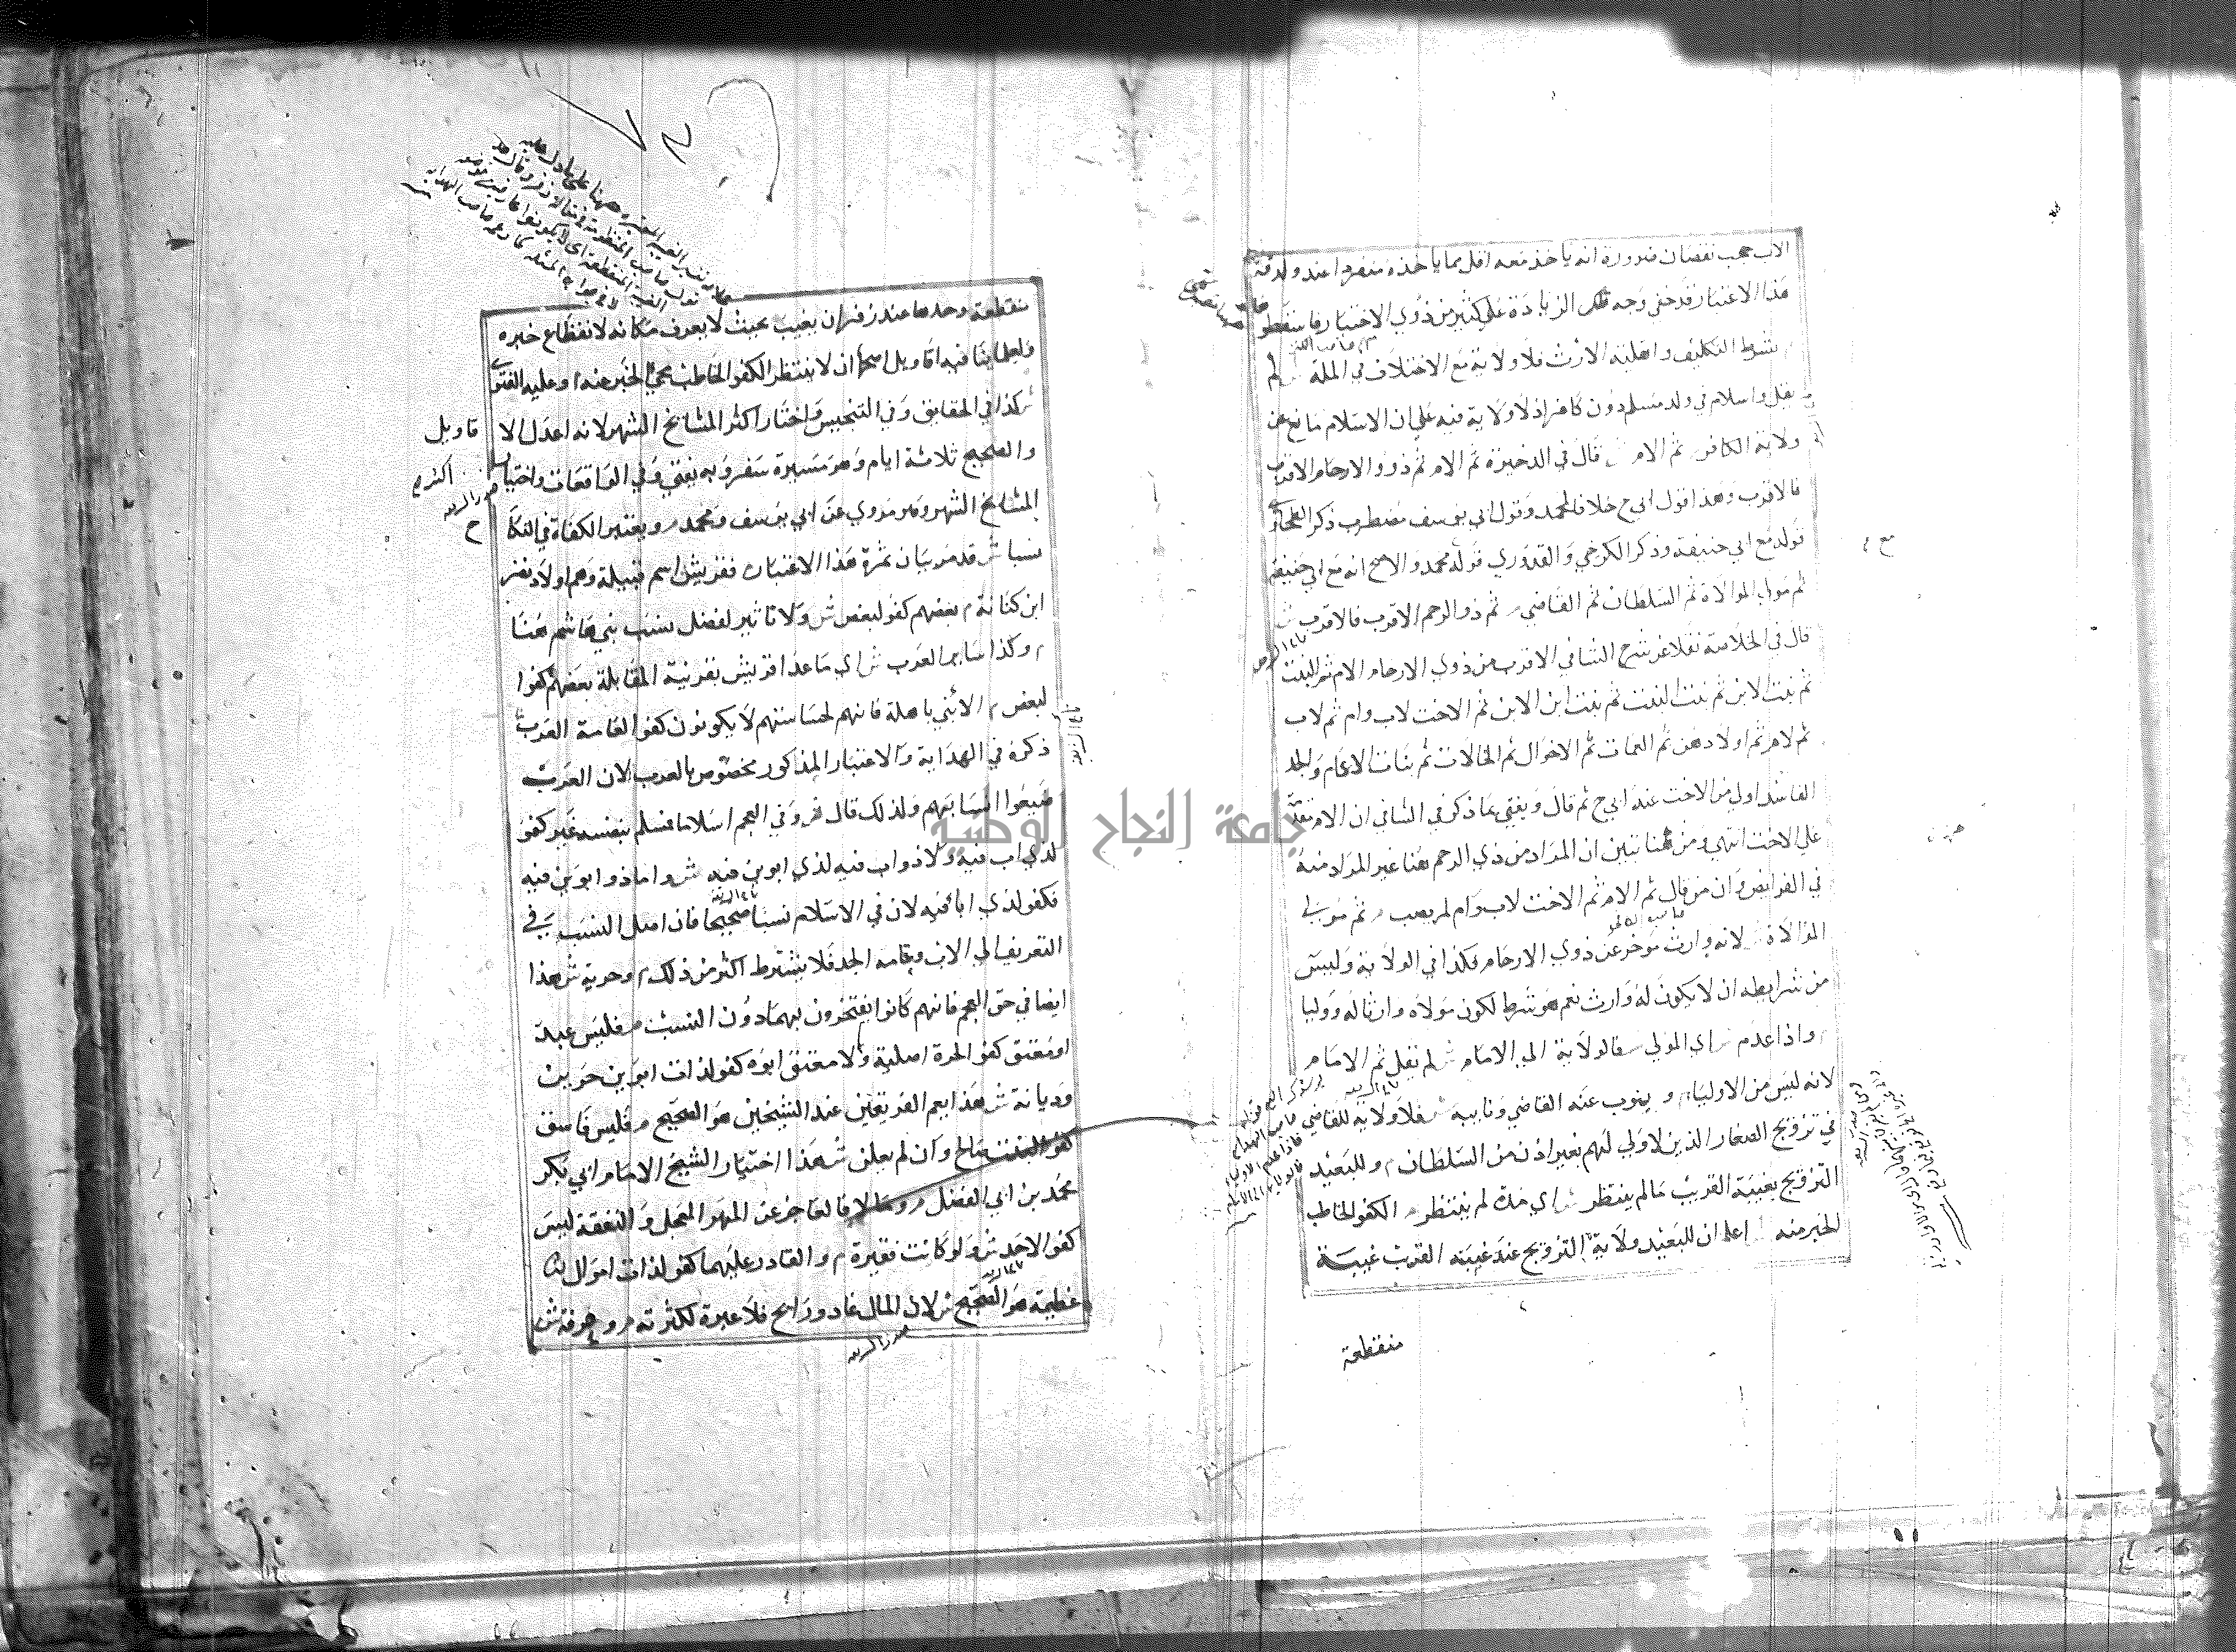 الاب حجب نقصان ضرورة انه ياخذ معه اقل مما ياخذه منفردا عند ولدقة
هذا الاعتبار قد خفى وجه تلك الزيادة على كثير من ذوي الاختبار فاسقطو
بشرط التكليف واهلية الارث فلا ولاية مع الاختلاف في الملة لم
يقل واسلام في ولد مسلم دون كافر اذ لا ولاية فيه على ان الاسلام مانع عن
ولاية الكافر ثم الام قال في الذخيرة ثم الام ثم ذوو الارحام الاقرب
فالاقرب وهذا قول ابي ح خلافا لمحمد وقول ابي يوسف مضطرب ذكر الطحاوي
قوله مع ابي حنيفة وذكر الكرخي والقدوري قوله محمد والاصح انه مع ابي حنيفة
ثم مولى الموالاة ثم السلطان ثم القاضي م ثم ذو الرحم الاقرب فالاقرب ش
قال في الخلاصة نقلا عن شرح الشافي الاقرب من ذوي الارحام الام ثم البنت
ثم بنت الابن ثم بنت البنت ثم بنت ابن الابن ثم الاخت لاب وام ثم لاب
ثم لام ثم اولادهن ثم العمات ثم الاخوال ثم الخالات ثم بنات الاعمام والجد
الفاسد اولى من الاخت عند ابي ح ثم قال ويفتى بما ذكر في الشافي ان الام مقدمة
على الاخت انتهى ومن ههنا تبين ان المراد من ذي الرحم هنا غير المراد منه
في الفرايض وان من قال ثم الام ثم الاخت لاب وام لم يصب م ثم مولى
الموالاة لانه وارث موخر عن ذوي الارحام فكذا في الولاية وليس
من شرايطه ان لا يكون له وارث نعم هو شرط لكون مولاه وارثا له ووليا
م واذا عدم ش اي المولى م فالولاية الى الامام ش لم يقل ثم الامام
لانه ليس من الاولياء م وينوب عنه القاضي ونايبه ش فلا ولاية للقاضي
في تزويج الصغار الذين لا ولي لهم بغير اذن من السلطان م وللبعيد
التزويج بغيبة القريب مالم ينتظر ش اي مدة لم ينتظر م الكفو الخاطب
الخبر منه اعلم ان للبعيد ولاية التزويج عند غيبة القرب غيبة
منقطعة
منقطعة وحدها عند زفر ان يغيب بحيث لا يعرف مكانه لانقطاع خبره
ولعلمائنا فيه اقاويل اصحها ان لا ينتظر الكفو الخاطب مجي الخبر عنه وعليه الفتوى
كذا في الحقايق وفي التجنيس واختار اكثر المشايخ الشهر لانه اعدل الا
قاويل
والصحيح ثلاثة ايام وهو مسيرة سفر وبه يفتي وفي الواقعات واختيار
اكثر
المشايخ الشهر وهو مروي عن ابي يوسف ومحمد م ويعتبر الكفاة في النكا
ح
نسبا ش قد مر بيان ثمرة هذا الاعتبار م فقريش اسم قبيلة وهم اولاد نضر
ابن كنانة م بعضهم كفو لبعض ش ولا تاثير لفضل نسب بني هاشم هنا
م وكذا ساير العرب ش اي ما عدا قريش بقرينة المقابلة بعضهم كفوا
لبعض م الا بني باهلة فانهم لخساستهم لا يكونون كفو العامة العرب
ذكره في الهداية والاعتبار المذكور مخصوص بالعرب لان العرب
ضيعوا انسابهم ولذلك قال م وفي العجم اسلاما فمسلم بنفسه غير كفو
لذي اب فيه ولا ذو اب فيه لذي ابوين فيه ش واما ذو ابوين فيه
فكفو لذي اباء فيه لان في الاسلام نسبا صحيحا فان اصل النسب في
التعريف الى الاب وتمامه الجد فلا يشترط اكثر من ذلك م وحرية ش هذا
ايضا في حق العجم فانهم كانوا يفتخرون بهما دون النسب م فليس عبد
او معتق كفو الحرة اصلية ولا معتق ابوه كفو لذات ابوين حرين
وديانة ش هذا يعم الفريقين عند الشيخين هو الصحيح م فليس فاسق
كفو البنت صالح وان لم يعلن ش هذا اختيار الشيخ الامام ابي بكر
محمد بن ابي الفضل م ومالا فالعاجز عن المهر المعجل والنفقة ليس
كفو الاحد ش ولو كانت فقيرة م والقادر عليهما كفو لذات اموال
عظيمة هو الصحيح ش لان المال غاد ورايح فلا عبرة لكثرته م وحرفة ش
جامعة النجاح الوطنية